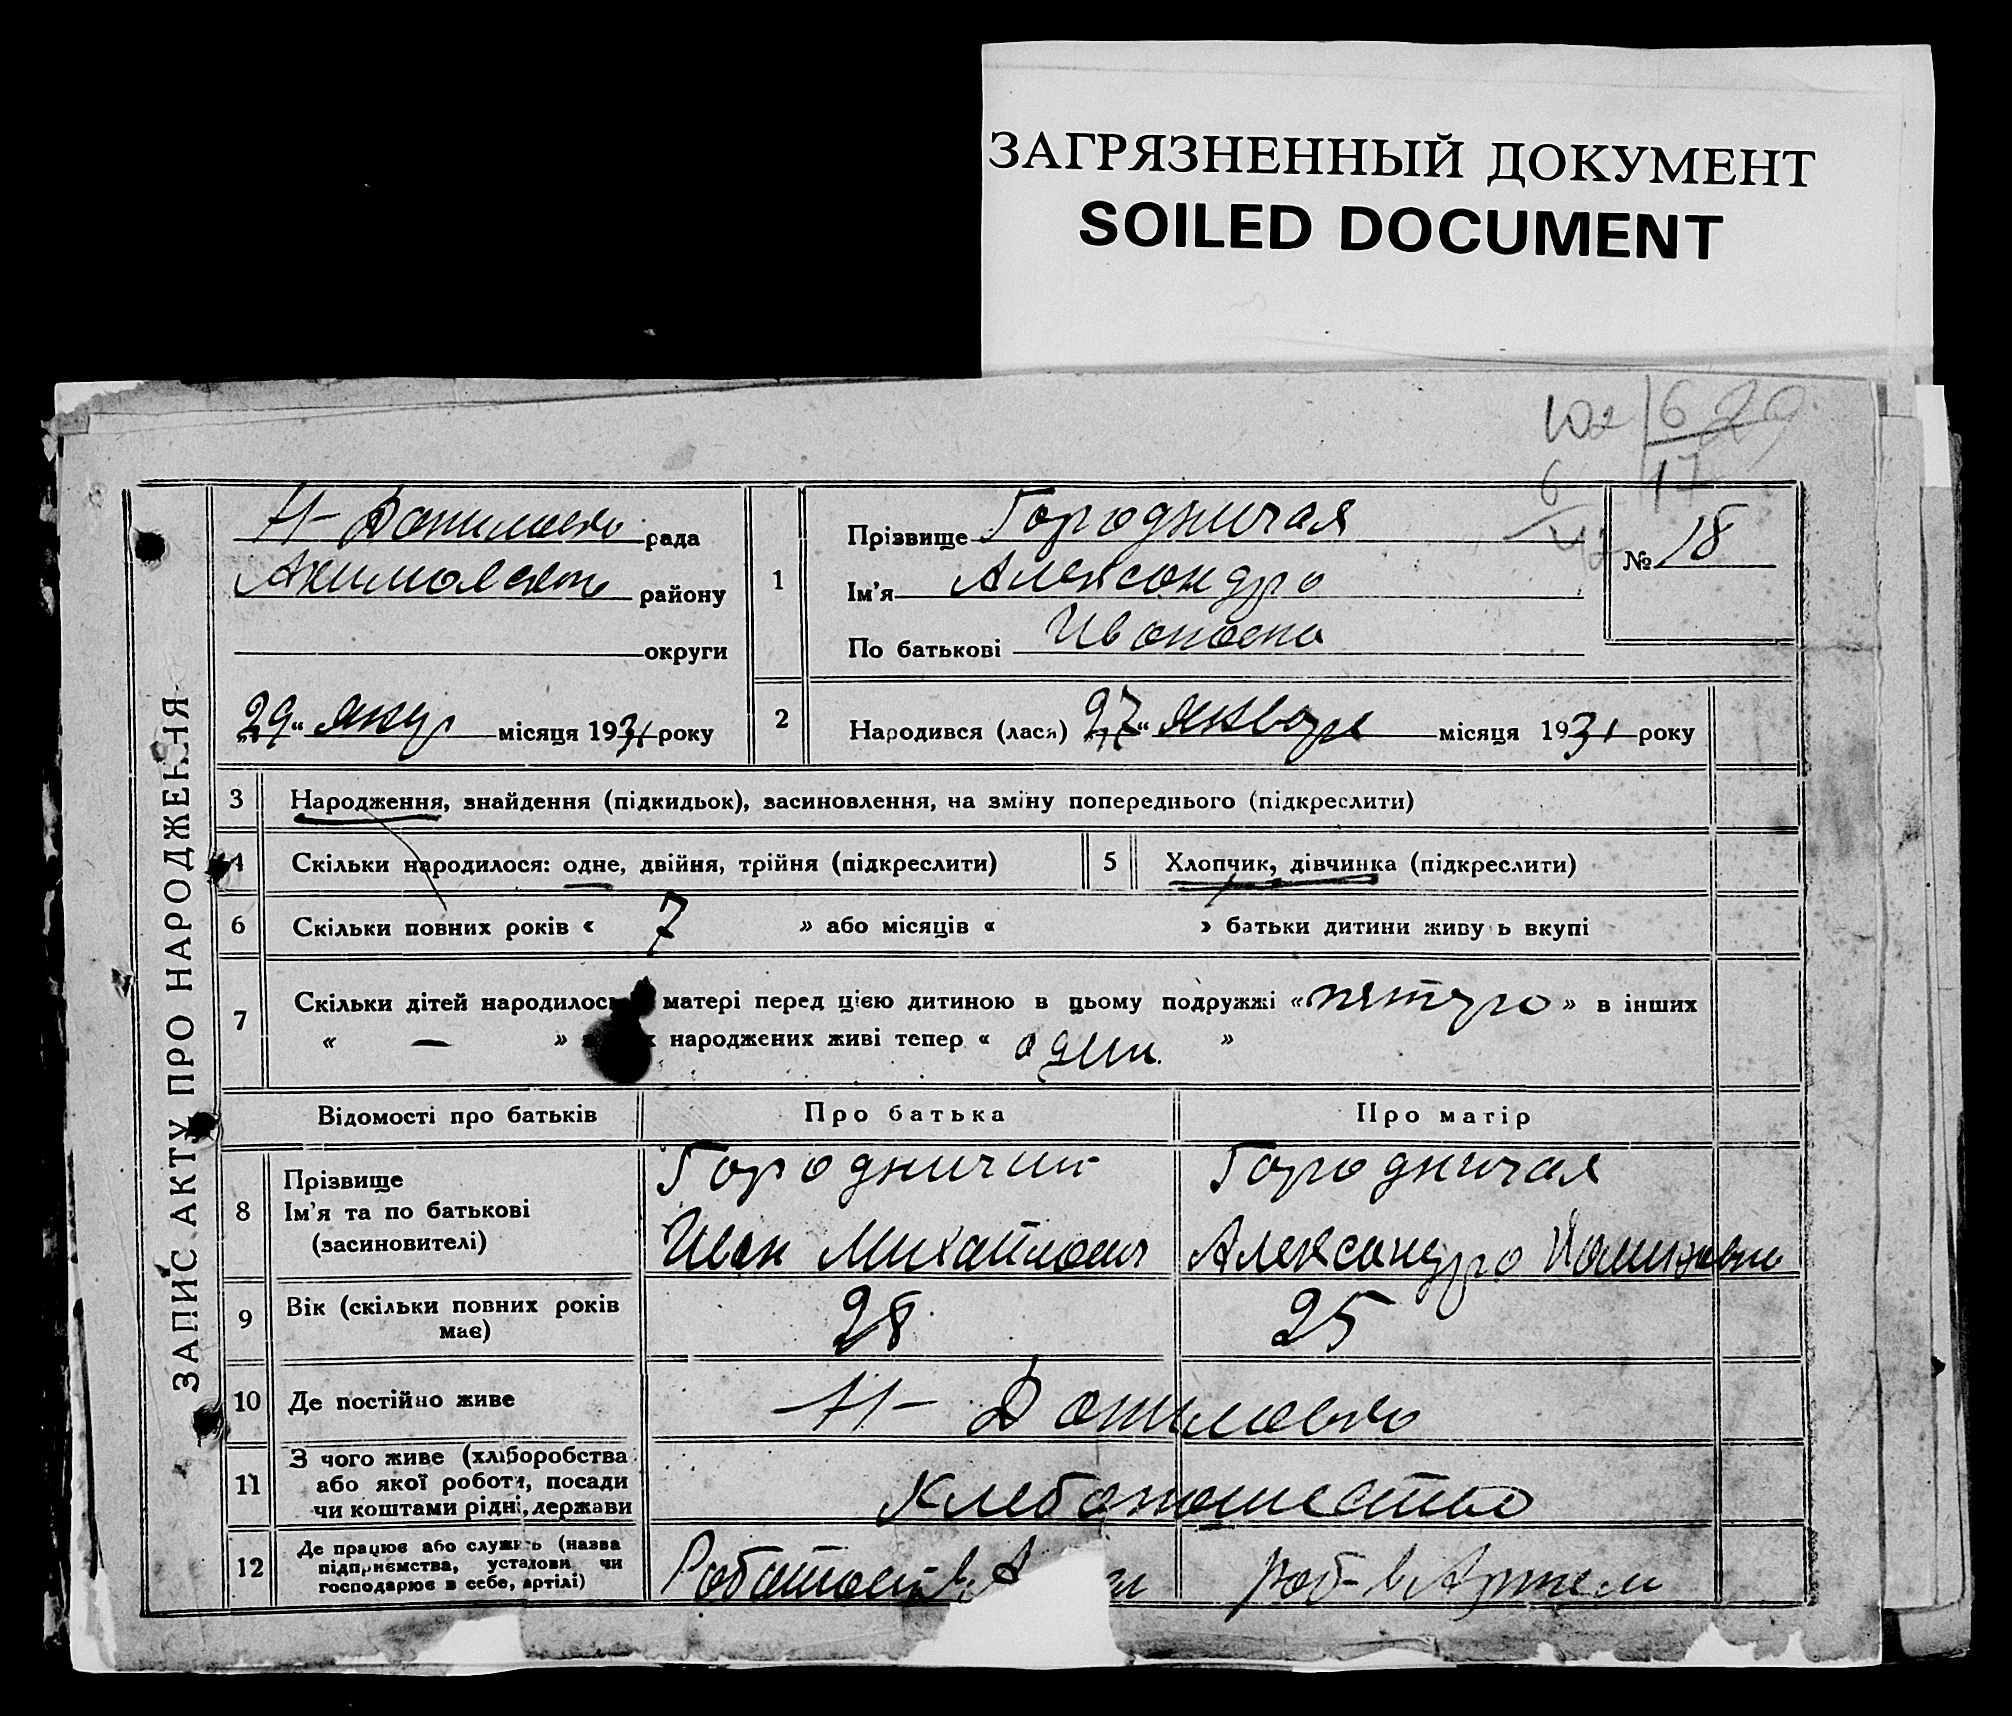 ЗАГРЯЗНЕННЫЙ ДОКУМЕНТ
SOILED DOCUMENT
ЗАПИС АКТУ ПРО НАРОДЖЕННЯ
Н-Даниловка рада
Акимовского району
округи
„29“ янвр місяця 1931 року
1
Прізвище Городничая
Ім'я Александра
По батькові Ивановна
№ 18
2
Народився (лася) „27“ января місяця 1931 року
3 Народження, знайдення (підкидьок), засиновлення, на зміну попереднього (підкреслити)
4 Скільки народилося: одне, двійня, трійня (підкреслити)
5 Хлопчик, дівчинка (підкреслити)
6 Скільки повних років « 7 » або місяців « » батьки дитини живуть вкупі
7 Скільки дітей народилось матері перед цією дитиною в цьому подружжі « пятеро » в інших
« — » народжених живі тепер « один »
Відомості про батьків Про батька Про матір
8 Прізвище
Ім'я та по батькові
(засиновителі)
Городничий
Иван Михайлович
Городничая
Александра
9 Вік (скільки повних років
має)
28 25
10 Де постійно живе Н-Даниловка
11 З чого живе (хліборобства
або якої роботи, посади
чи коштами рідні, держави
хлебопашество
12 Де працює або служить (назва
підприємства, установи чи
господарює в себе, артілі)
Работает в раб- в Артели